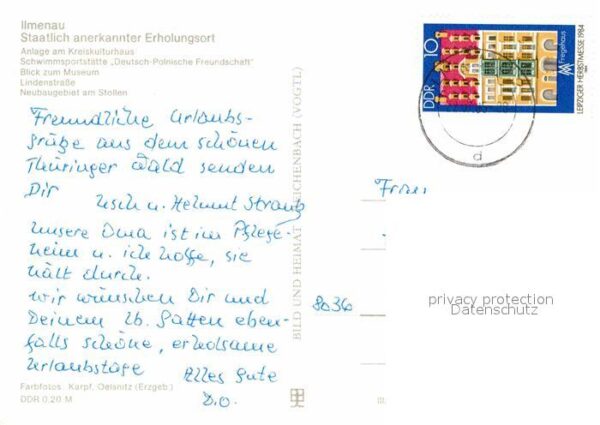 Ilmenau
Staatlich anerkannter Erholungsort
Anlage am Kreiskulturhaus
Schwimmsportstätte „Deutsch-Polnische Freundschaft"
Blick zum Museum
Lindenstraße
Neubaugebiet am Stollen
Freundliche Urlaubs-
grüße aus dem schönen
Thüringer Wald senden
Dir
Usch u. Helmut
Unsere Oma ist im Pflege-
heim u. ich hoffe, sie
hält durch.
Wir wünschen Dir und
Deinem lb. Gatten eben-
falls schöne, erholsame
Urlaubstage
Alles Gute
D.O.
Farbfotos: Karpf, Oelsnitz (Erzgeb.)
DDR 0,20 M
BILD UND HEIMAT REICHENBACH (VOGTL)
DDR 10
Fregehaus
LEIPZIGER HERBSTMESSE 1984
d
Frau
8036
privacy protection
Datenschutz